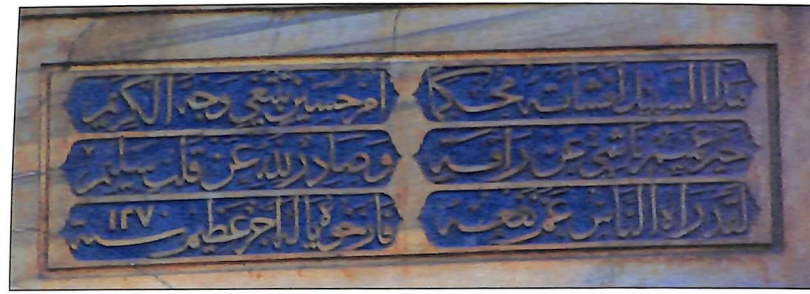 هذا السبيل انشاته محكما ام حسين تبتغي وجه الكريم
خير عميم ناشئ عن رافة وصادر لله عن قلب سليم
لقد راه الناس عم نفعه فارخوه يا له اجر عظيم سنة ١٢٧٠